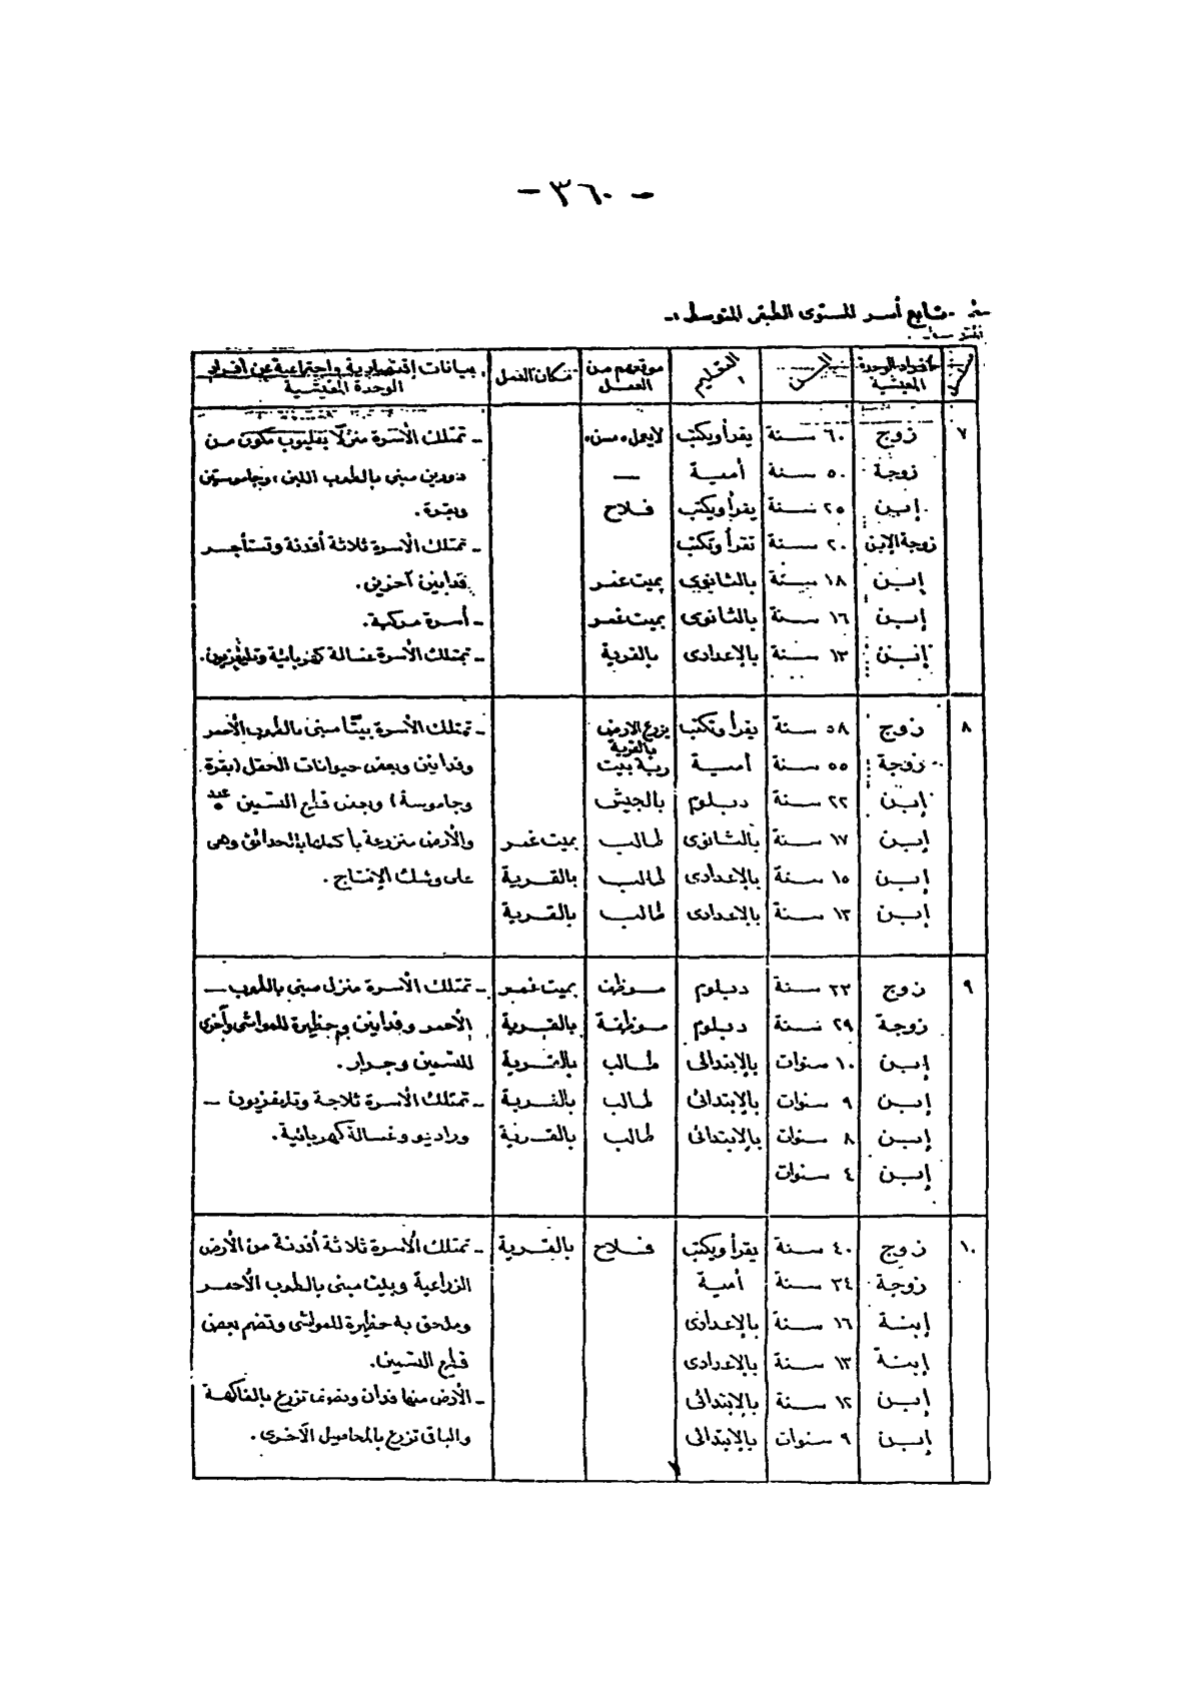 - ٣٦٠ -
تابع أسر المستوى الطبقى المتوسط :-
أفراد الوحدة المعيشية | السن | التعليم | موقعهم من العمل | مكان العمل | بيانات إقتصادية وإجتماعية عن أفراد الوحدة المعيشية
٧ | زوج | ٦٠ سنة | يقرأ ويكتب | لايعمل، مسن، | | - تمتلك الأسرة منزلًا مكون من
زوجة | ٥٠ سنة | أمية | — | | دورين مبنى بالطوب اللبن، وجاموستين
إبن | ٢٥ سنة | يقرأ ويكتب | فلاح | | وبقرة.
زوجة الإبن | ٢٠ سنة | تقرأ وتكتب | | | - تمتلك الأسرة ثلاثة أفدنة وتستأجر
إبن | ١٨ سنة | بالثانوى | بميت غمر | | فدانين آخرين.
إبن | ١٦ سنة | بالثانوى | بميت غمر | | - أسرة مركبة.
إبن | ١٣ سنة | بالإعدادى | بالقرية | | - تمتلك الأسرة غسالة كهربائية وتليفزيون.
٨ | زوج | ٥٨ سنة | يقرأ وتكتب | يزرع الارض بالقرية | | - تمتلك الأسرة بيتًا مبنى بالطوب الأحمر
زوجة | ٥٥ سنة | أمية | ربة بيت | | وفدانين وبعض حيوانات الحقل (بقرة
إبن | ٢٢ سنة | دبلوم | بالجيش | | وجاموسة) وبعض قطع التسمين
إبن | ١٧ سنة | بالثانوى | طالب | بميت غمر | والأرض منزرعة بأكملها بالحدائق وهى
إبن | ١٥ سنة | بالإعدادى | طالب | بالقرية | على وشك الإنتاج.
إبن | ١٣ سنة | بالإعدادى | طالب | بالقرية
٩ | زوج | ٣٣ سنة | دبلوم | موظف | بميت غمر | - تمتلك الأسرة منزل مبنى بالطوب —
زوجة | ٢٩ سنة | دبلوم | موظفة | بالقرية | الأحمر وفدانين وحظيرة للمواشى وأخرى
إبن | ١٠ سنوات | بالإبتدائى | طالب | بالقرية | للتسمين وجرار.
إبن | ٩ سنوات | بالإبتدائى | طالب | بالقرية | - تمتلك الأسرة ثلاجة وتليفزيون —
إبن | ٨ سنوات | بالإبتدائى | طالب | بالقرية | وراديو وغسالة كهربائية.
إبن | ٤ سنوات
١٠ | زوج | ٤٠ سنة | يقرأ ويكتب | فلاح | بالقرية | - تمتلك الأسرة ثلاثة أفدنة من الأرض
زوجة | ٣٤ سنة | أمية | | | الزراعية وبيت مبنى بالطوب الأحمر
إبنة | ١٦ سنة | بالإعدادى | | | وملحق به حظيرة للمواشى وتضم بعض
إبنة | ١٣ سنة | بالإعدادى | | | قطع التسمين.
إبن | ١٢ سنة | بالإبتدائى | | | - الأرض منها فدان ونصف تزرع بالفاكهة
إبن | ٩ سنوات | بالإبتدائى | | | والباقى تزرع بالمحاصيل الآخرى.